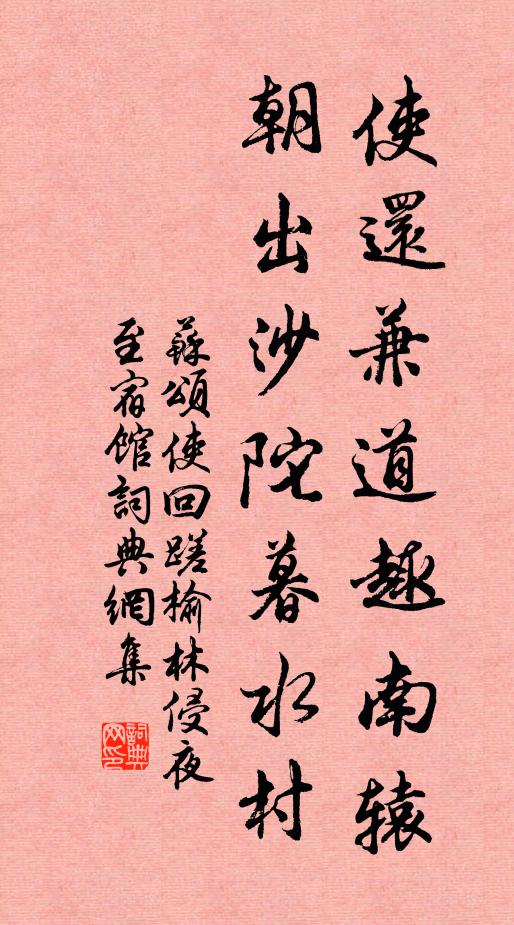 使還兼道趣南辕
朝出沙陀暮水村
蘇頌使回蹉榆林侵夜
至宿館詞典網集
詞典網印